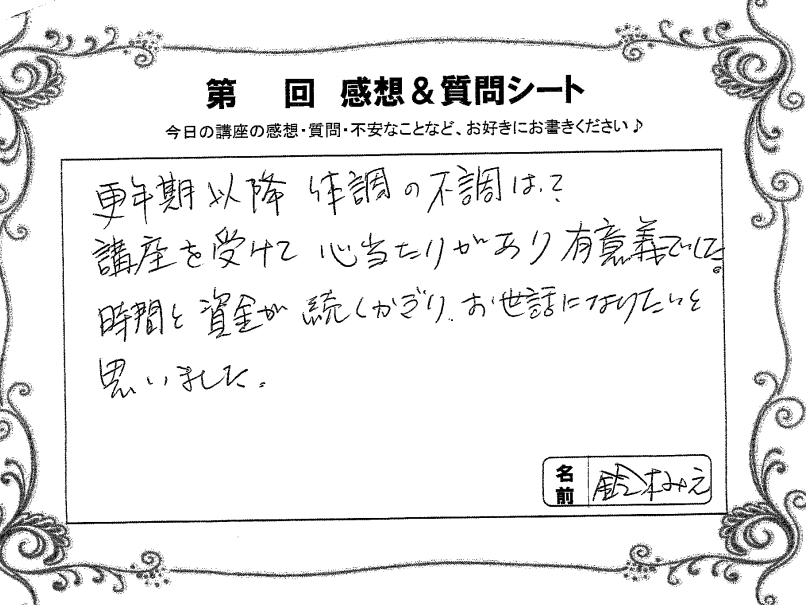 第　　回 感想＆質問シート
今日の講座の感想・質問・不安なことなど、お好きにお書きください♪
更年期以降 体調の不調は、?
講座を受けて 心当たりがあり 有意義でした。
時間と資金が 続くかぎり、お世話になりたいと
思いました。
名前 鈴木みえ